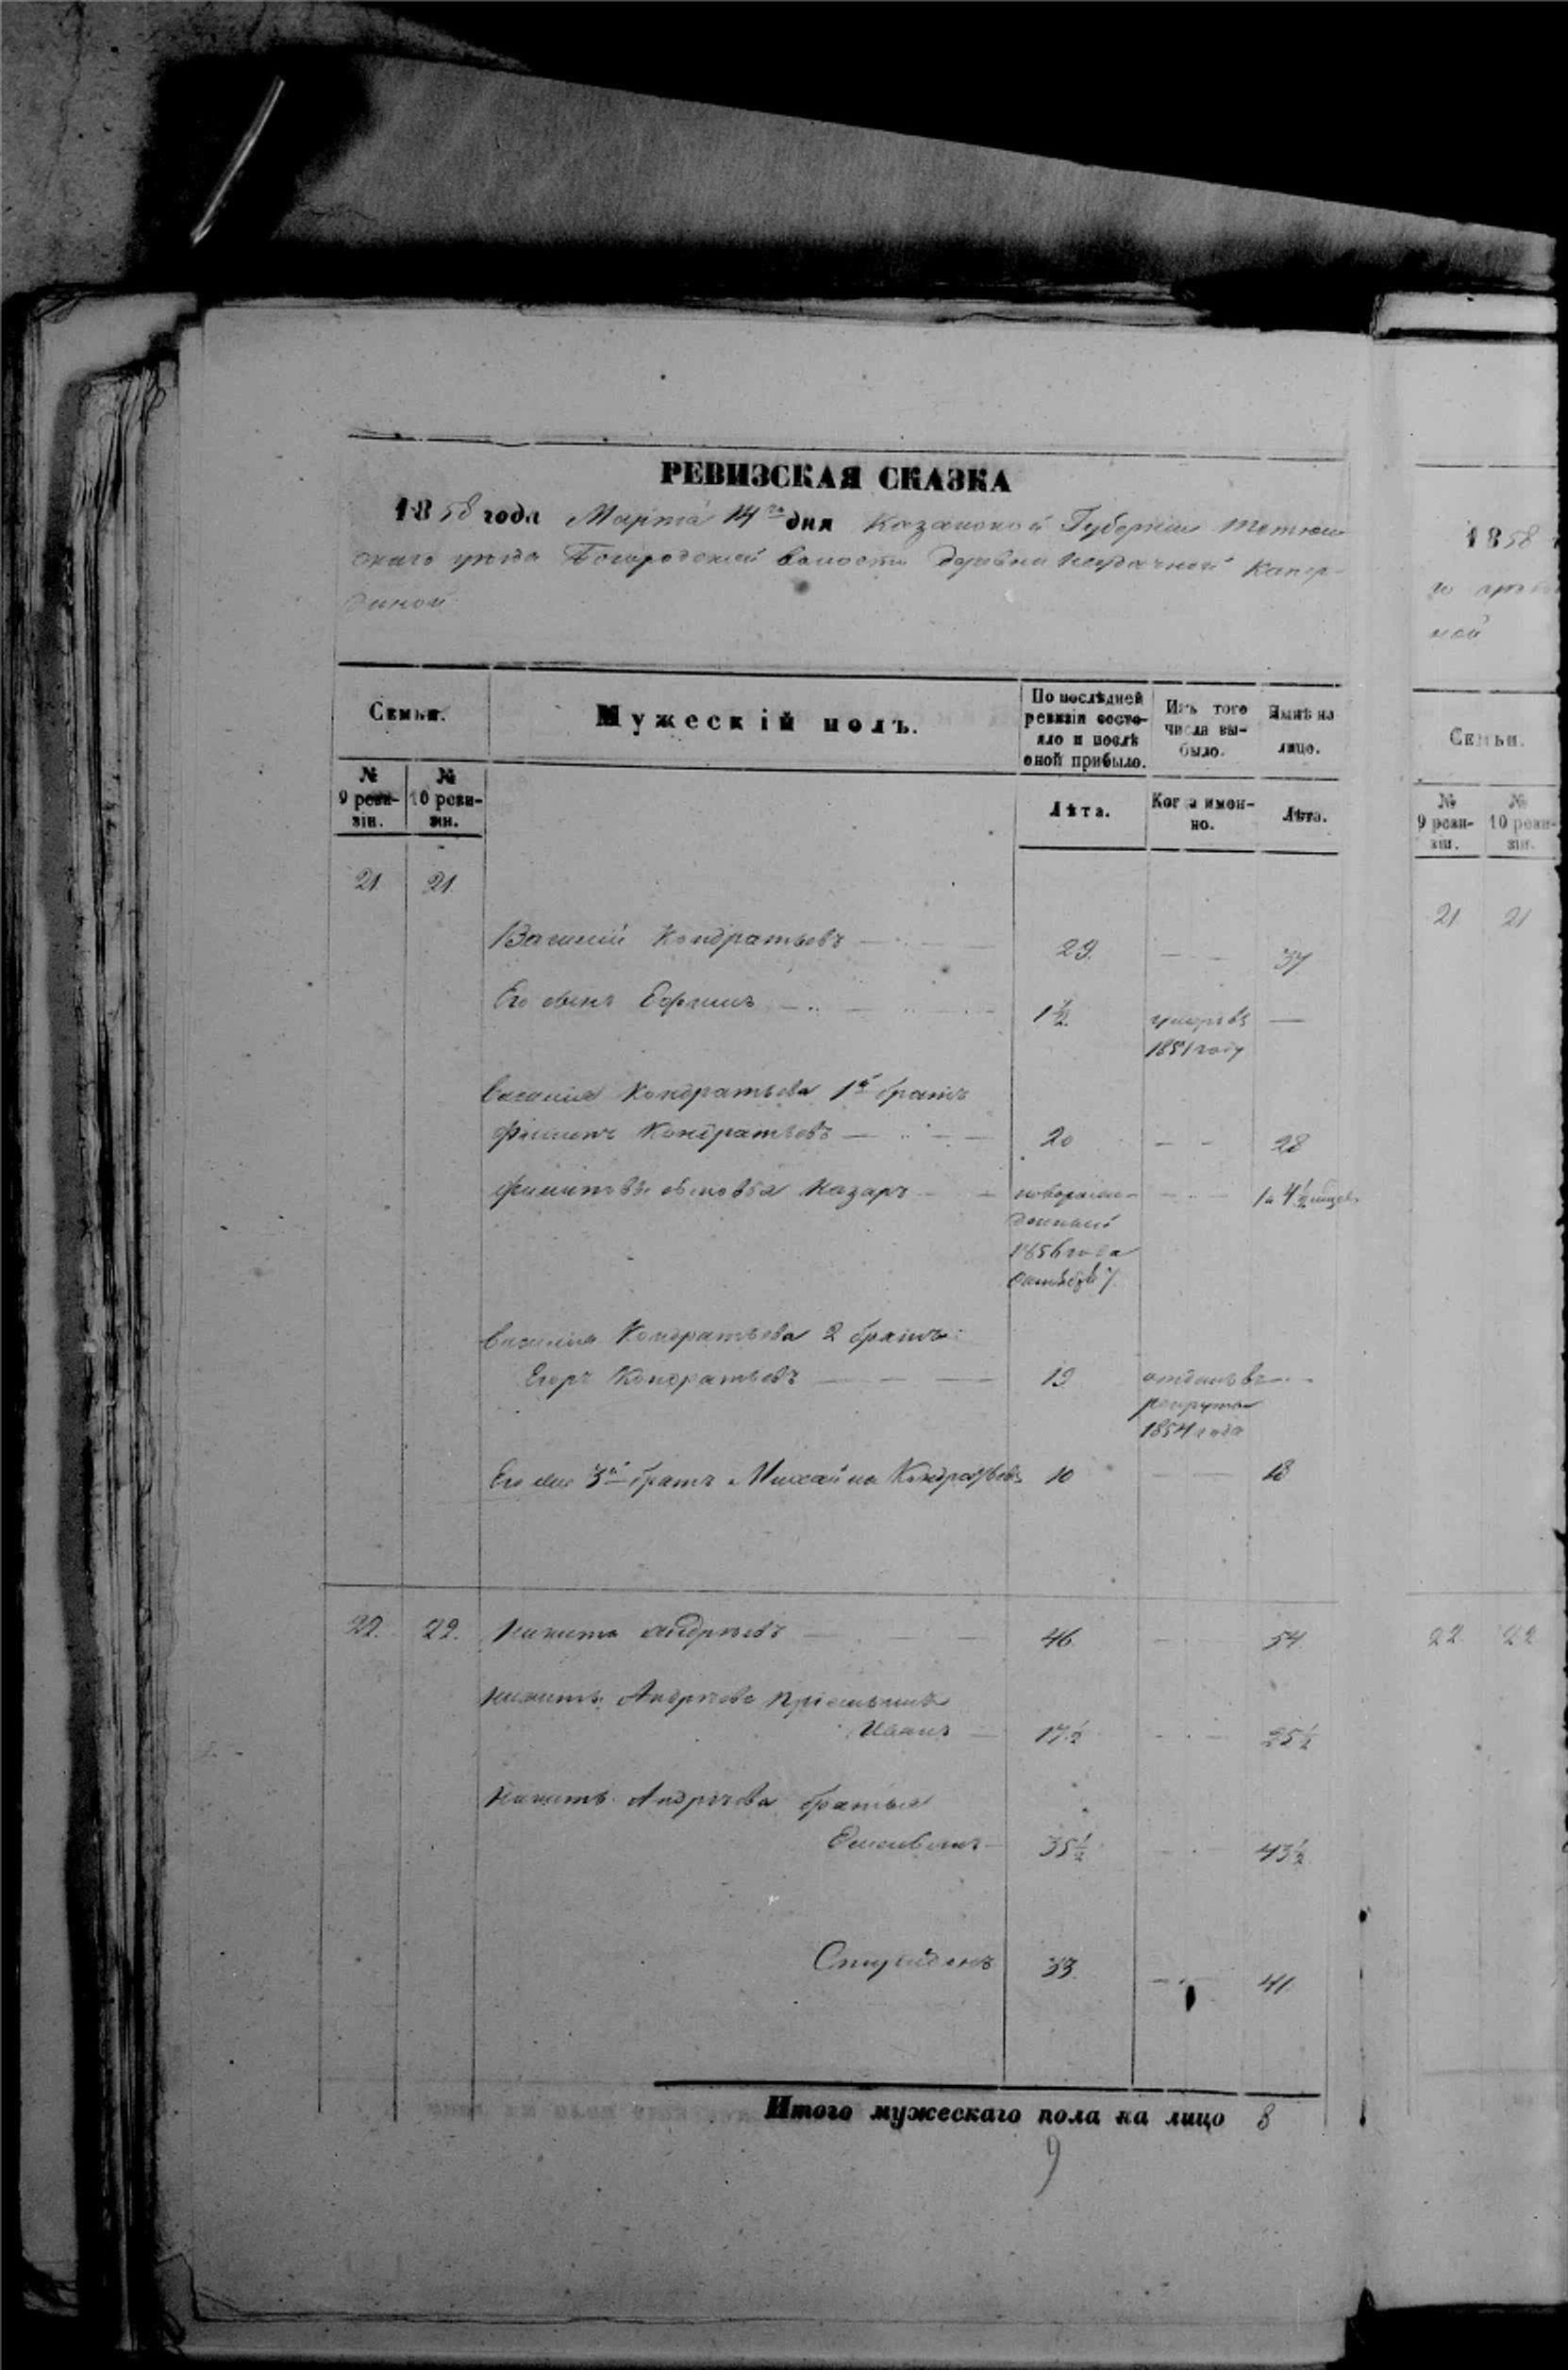 РЕВИЗСКАЯ СКАЗКА
1858 года Марта 14го дня Казанской Губернии Тетюш
скаго уѣзда Богородской волости деревни Неудачной Кашер-
диной
Семьи.
Мужескій полъ.
По послѣдней
ревизіи состо-
яло и послѣ
оной прибыло.
Изъ того
числа вы-
было.
Нынѣ на
лицо.
№
9 реви-
зіи.
№
10 реви-
зіи.
Лѣта.
Когда имен-
но.
Лѣта.
21. 21.
Василій Кондратьевъ 29. 37
Его сынъ Ефимъ 1½ умеръ въ
1851 году
Василія Кондратьева 1й братъ
Филипъ Кондратьевъ 20 28
Филиповъ сынъ Назаръ новорож- 1 и 4½ мѣсяц.
денный
1856 года
Октября
Василія Кондратьева 2 братъ
Егоръ Кондратьевъ 19 отданъ въ
рекруты
1854 года
Его же 3й братъ Михайла Кондратьевъ 10 18
22. 22. Никита Андрѣевъ 46. 54
Никиты Андрѣева пріемышъ
Иванъ 17½ 25½
Никиты Андрѣева братья
Емельянъ 35½ 43½
Спиридонъ 33. 41
Итого мужескаго пола на лицо 8
9
1858
го
ной
Семьи.
№
9 реви-
зіи.
№
10 реви-
зіи.
21 21
22. 22